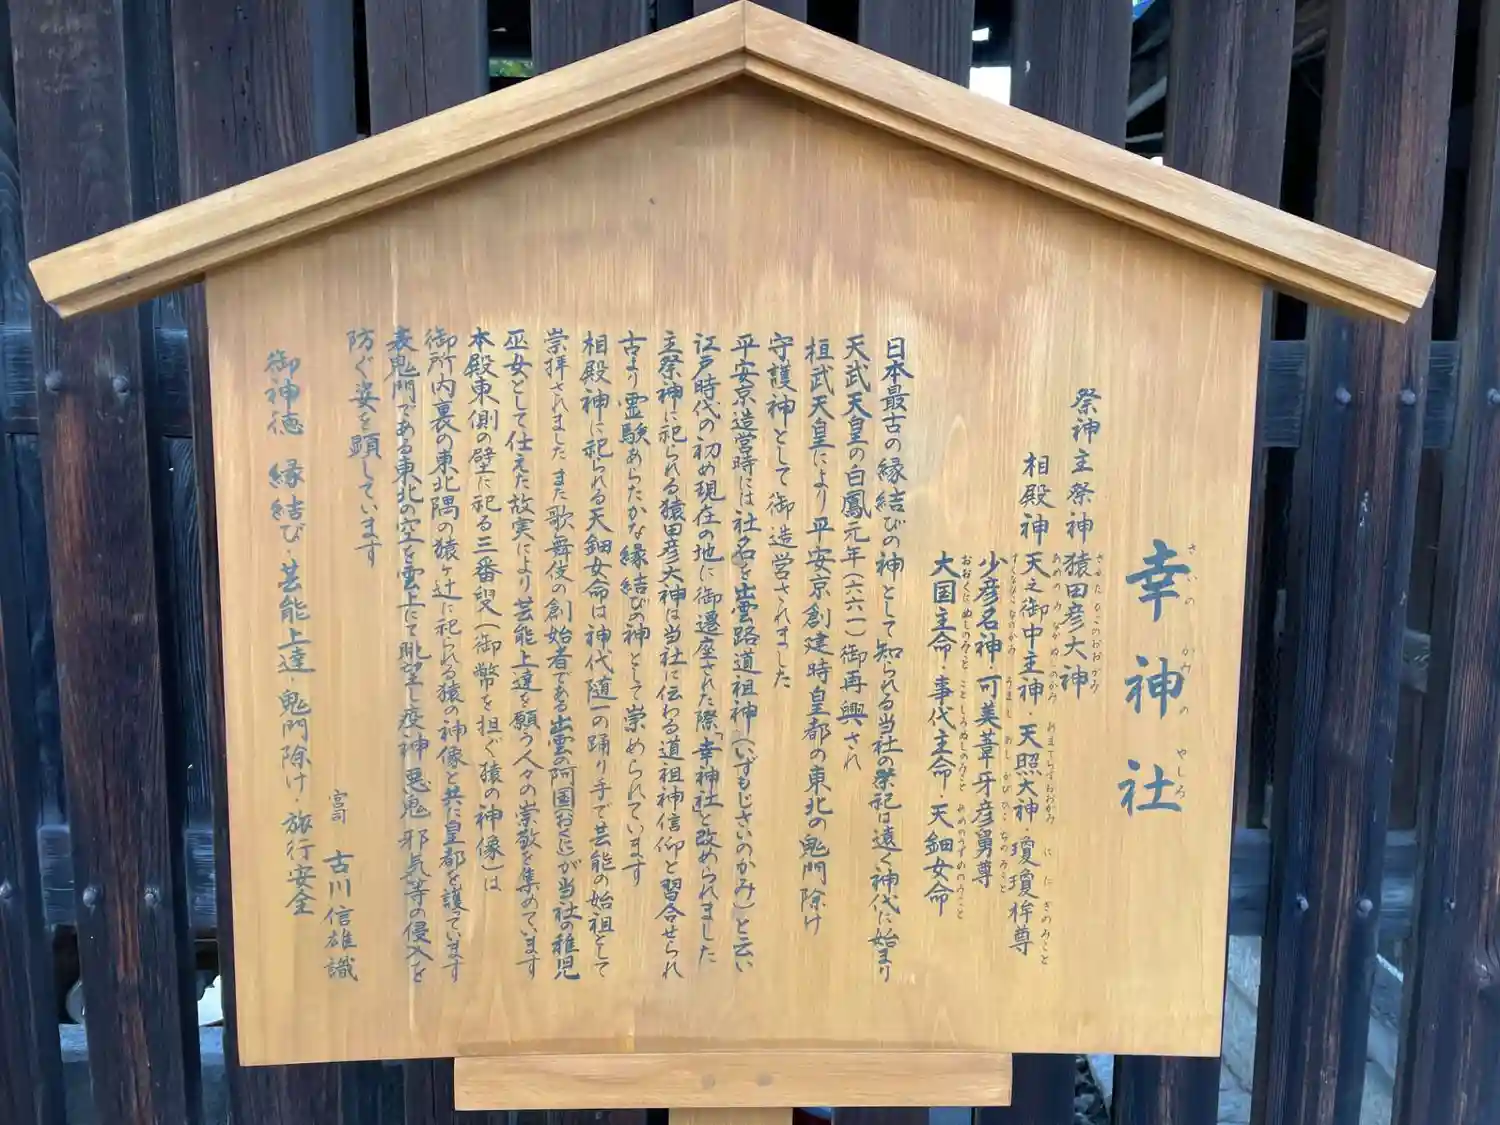 幸神社
さいのかみのやしろ
祭神主祭神 猿田彦大神
さるたひこのおおかみ
相殿神 天之御中主神・天照大神・瓊瓊杵尊
あめのみなかぬしのかみ あまてらすおおかみ ににぎのみこと
少彦名神・可美葦牙彦舅尊
すくなひこなのかみ うましあしかびひこぢのみこと
大国主命・事代主命・天鈿女命
おおくにぬしのみこと ことしろぬしのみこと あめのうずめのみこと
日本最古の縁結びの神として知られる当社の祭祀は遠く神代に始まり
天武天皇の白鳳元年(六六一)御再興され
桓武天皇により平安京創建時皇都の東北の鬼門除け
守護神として御造営されました
平安京造営時には社名を出雲路道祖神(いずもじさいのかみ)と云い
江戸時代の初め現在の地に御遷座された際「幸神社」と改められました
主祭神に祀られる猿田彦大神は当社に伝わる道祖神信仰と習合せられ
古より霊験あらたかな縁結びの神として崇められています
相殿神に祀られる天鈿女命は神代随一の踊り手で芸能の始祖として
崇拝されました また歌舞伎の創始者である出雲の阿国(おくに)が当社の稚児
巫女として仕えた故実により芸能上達を願う人々の崇敬を集めています
本殿東側の壁に祀る三番叟(御幣を担ぐ猿の神像)は
御所内裏の東北隅の猿ヶ辻に祀られる猿の神像と共に皇都を護っています
表鬼門である東北の空を雲上にて眺望し疫神 悪鬼 邪気等の侵入を
防ぐ姿を顕しています
宮司 古川信雄識
御神徳 縁結び・芸能上達・鬼門除け・旅行安全